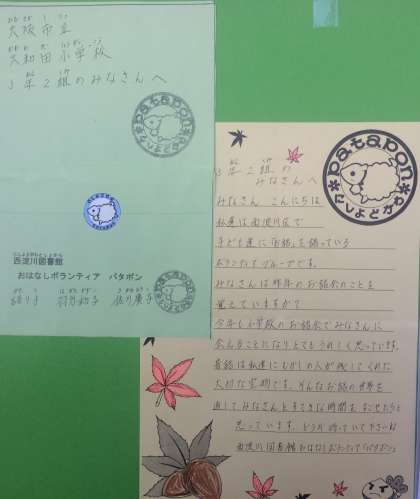 大阪市立
大和田小学校
3年2組のみなさんへ
西淀川図書館
おはなしボランティア パタポン
語り手
patapon
にしよどがわ
3年2組の
みなさんへ
みなさん こんにちは
私達は西淀川区で
子ども達にお話を語っている
ボランティアグループです。
みなさんは昨年のお話会のことを
覚えていますか?
今年も小学校のお話会でみなさんに
会えることになりとてもうれしく思っています。
昔話は私達にむかしの人が残してくれた
大切な宝物です。そんなお話の世界を
通してみなさんとすてきな時間をすごせたらと
思っています。どうか待っていて下さいね
西淀川図書館おはなしボランティア「パタポン」